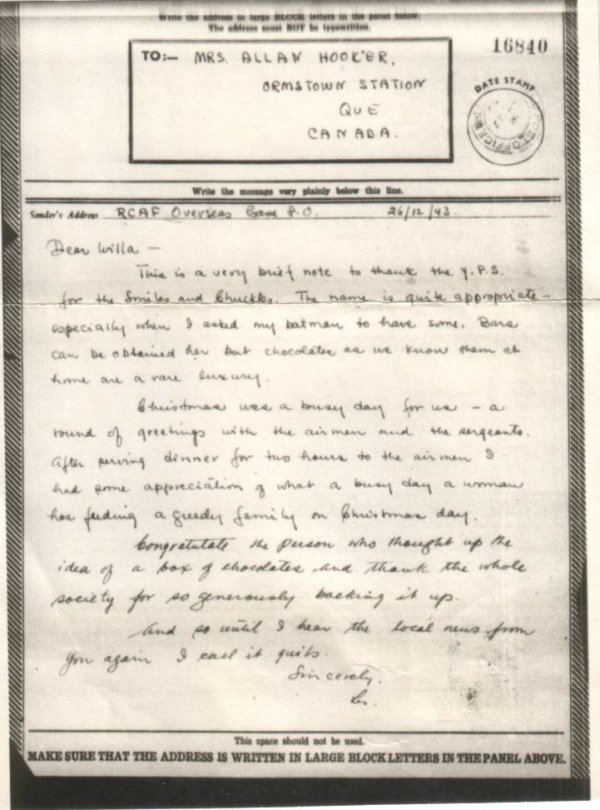 Write the address in large BLOCK letters in the panel below.
The address must NOT be typewritten.
16840
TO:— MRS. ALLAN HOOKER,
ORMSTOWN STATION
QUE
CANADA.
DATE STAMP
Write the message very plainly below this line.
Sender's Address RCAF Overseas Base P.O. 26/12/43.
Dear Willa —
This is a very brief note to thank the Y.P.S.
for the Smiles and Chuckles. The name is quite appropriate —
especially when I asked my batman to have some. Bars
can be obtained her but chocolates as we know them at
home are a rare luxury.
Christmas was a busy day for us — a
round of greetings with the airmen and the sergeants.
After serving dinner for two hours to the airmen I
had some appreciation of what a busy day a woman
has feeding a greedy family on Christmas day.
Congratulate the person who thought up the
idea of a box of chocolates and thank the whole
society for so generously backing it up.
And so until I hear the local news from
you again I call it quits.
Sincerely,
Les.
This space should not be used.
MAKE SURE THAT THE ADDRESS IS WRITTEN IN LARGE BLOCK LETTERS IN THE PANEL ABOVE.